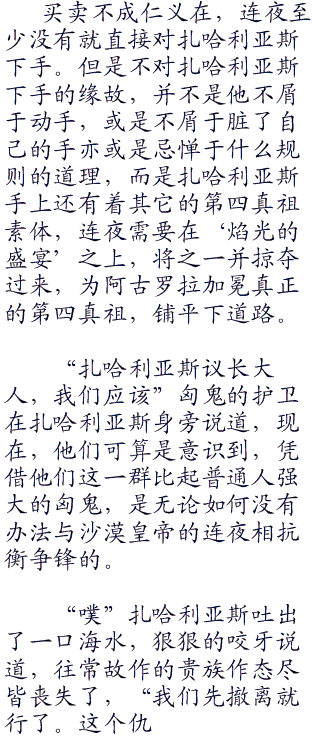 买卖不成仁义在，连夜至
少没有就直接对扎哈利亚斯
下手。但是不对扎哈利亚斯
下手的缘故，并不是他不屑
于动手，或是不屑于脏了自
己的手亦或是忌惮于什么规
则的道理，而是扎哈利亚斯
手上还有着其它的第四真祖
素体，连夜需要在‘焰光的
盛宴’之上，将之一并掠夺
过来，为阿古罗拉加冕真正
的第四真祖，铺平下道路。
“扎哈利亚斯议长大
人，我们应该”匈鬼的护卫
在扎哈利亚斯身旁说道，现
在，他们可算是意识到，凭
借他们这一群比起普通人强
大的匈鬼，是无论如何没有
办法与沙漠皇帝的连夜相抗
衡争锋的。
“噗”扎哈利亚斯吐出
了一口海水，狠狠的咬牙说
道，往常故作的贵族作态尽
皆丧失了，“我们先撤离就
行了。这个仇